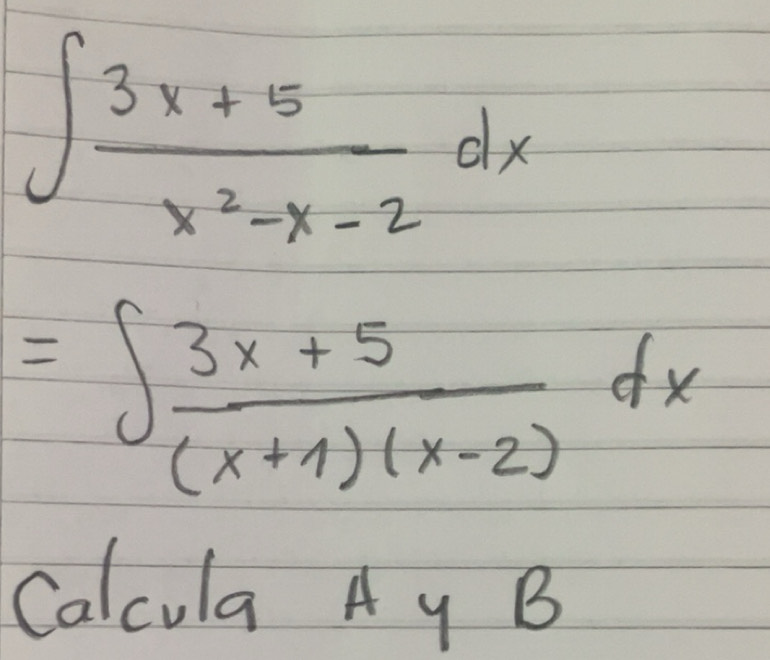 ∫ (3x + 5)/(x² - x - 2) dx
= ∫ (3x + 5)/((x+1)(x-2)) dx
Calcula A y B